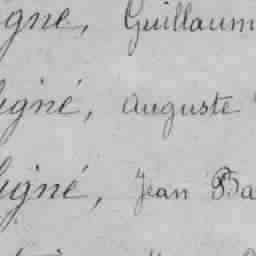 igne, Guillaum
igné, Auguste
igné, Jean Ba